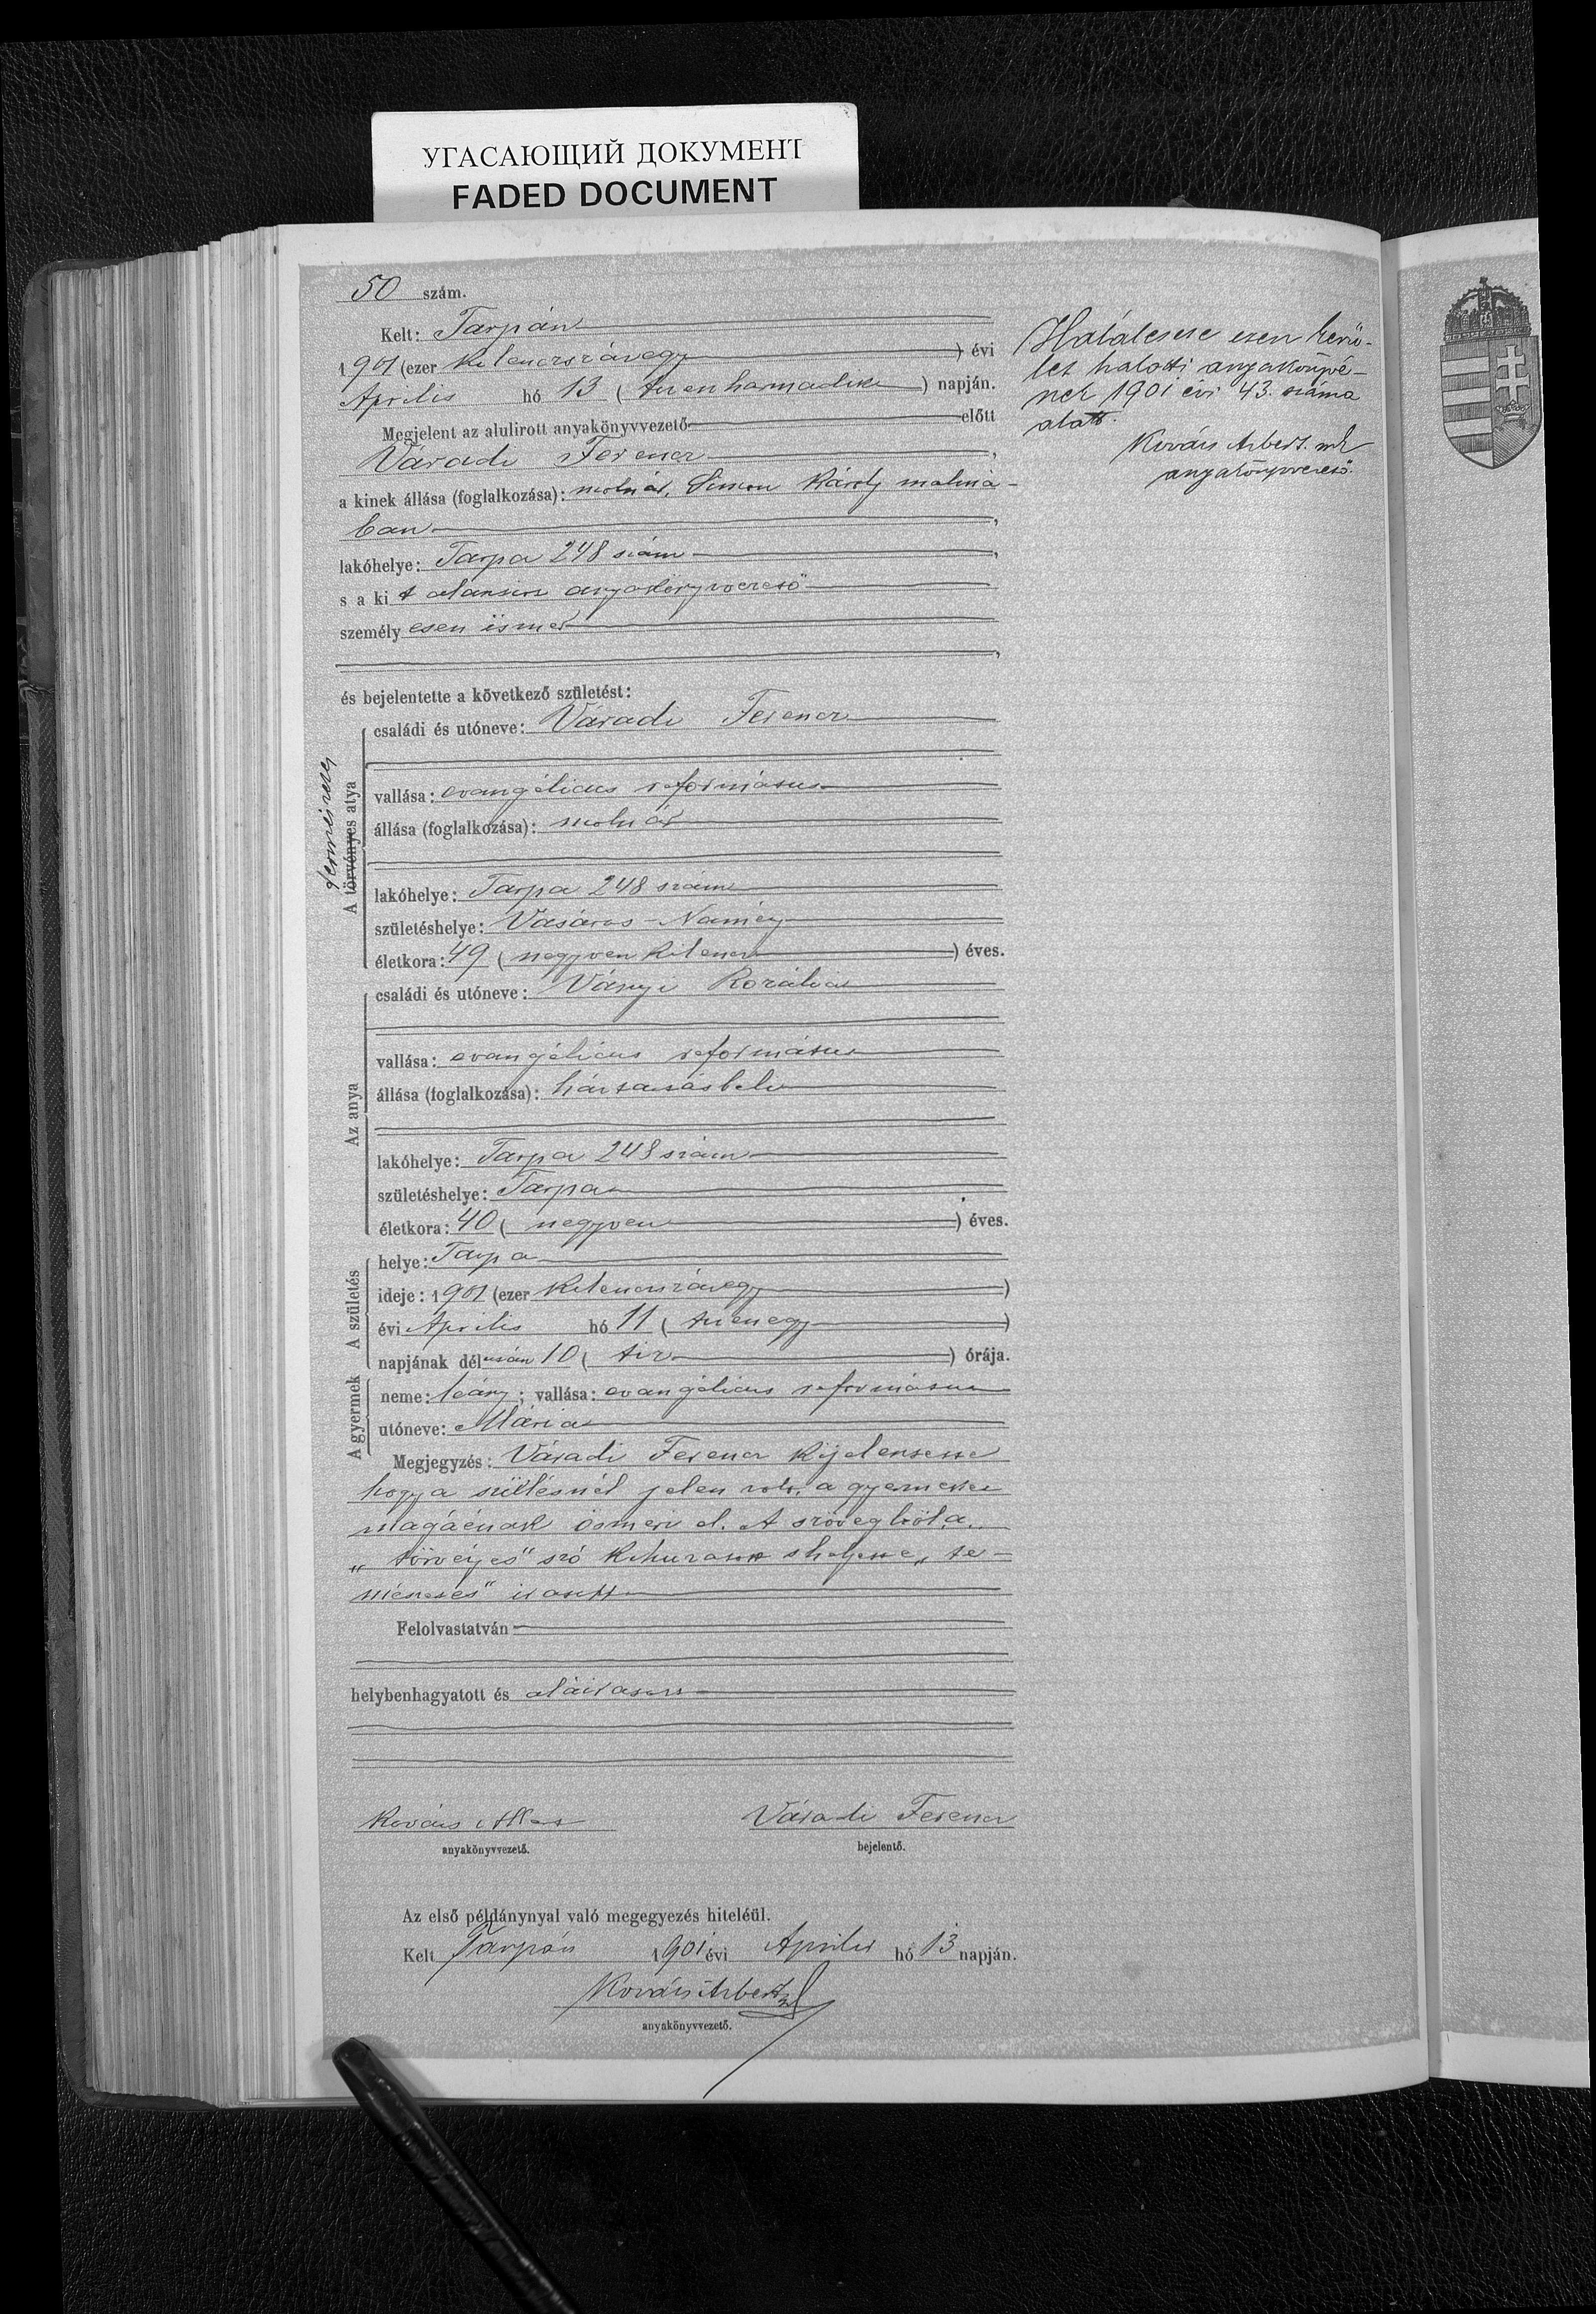 УГАСАЮЩИЙ ДОКУМЕНТ
FADED DOCUMENT
50 szám.
Kelt: Tarpán
1901 (ezer kilenczszázegy) évi
Április hó 13 (tizenharmadika) napján.
Megjelent az alulirott anyakönyvvezető előtt
Váradi Ferencz,
a kinek állása (foglalkozása): molnár, Simon Károly malmá-
ban,
lakóhelye: Tarpa 248 szám,
s a kit alantirt anyakönyvvezető
személyesen ismer
,
és bejelentette a következő születést:
természetes
A törvényes atya
családi és utóneve: Váradi Ferencz
vallása: evangélicus református
állása (foglalkozása): molnár
lakóhelye: Tarpa 248 szám
születéshelye: Vásáros-Namény
életkora: 49 (negyvenkilencz) éves.
Az anya
családi és utóneve: Ványi Rozália
vallása: evangélicus református
állása (foglalkozása): háztartásbeli
lakóhelye: Tarpa 248 szám
születéshelye: Tarpa
életkora: 40 (negyven) éves.
A születés
helye: Tarpa
ideje: 1901 (ezer kilenczszázegy)
évi Április hó 11 (tizenegy)
napjának délután 10 (tiz) órája.
A gyermek
neme: leány; vallása: evangélicus református
utóneve: Mária
Megjegyzés: Váradi Ferencz kijelentette
hogy a szülésnél jelen volt, a gyermeket
magáénak ösmeri el. A szövegből a
„törvényes" szó kihuzatott s helyette „ter-
mészetes" iratott
Felolvastatván
helybenhagyatott és aláiratott
Kovács Albert
anyakönyvvezető.
Váradi Ferencz
bejelentő.
Az első példánynyal való megegyezés hiteléül.
Kelt Tarpán 1901 évi Április hó 13 napján.
Kovács Albert
anyakönyvvezető.
Halálesete ezen kerü-
let halotti anyakönyvé-
nek 1901 évi 43. száma
alatt.
Kovács Albert. mk
anyakönyvvezető.